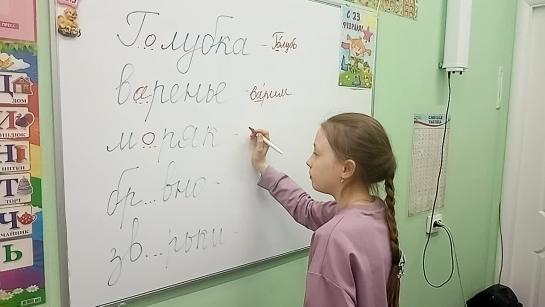 Голубка - Голубь
варенье - варим
моряк -
бр...вно -
зв...рьки -
С 23
ФЕВРАЛЯ!
Д ДОМ
И ИНДЮК
Н НИТКИ
Т ТОРТ
Ч ЧАЙНИК
Ь